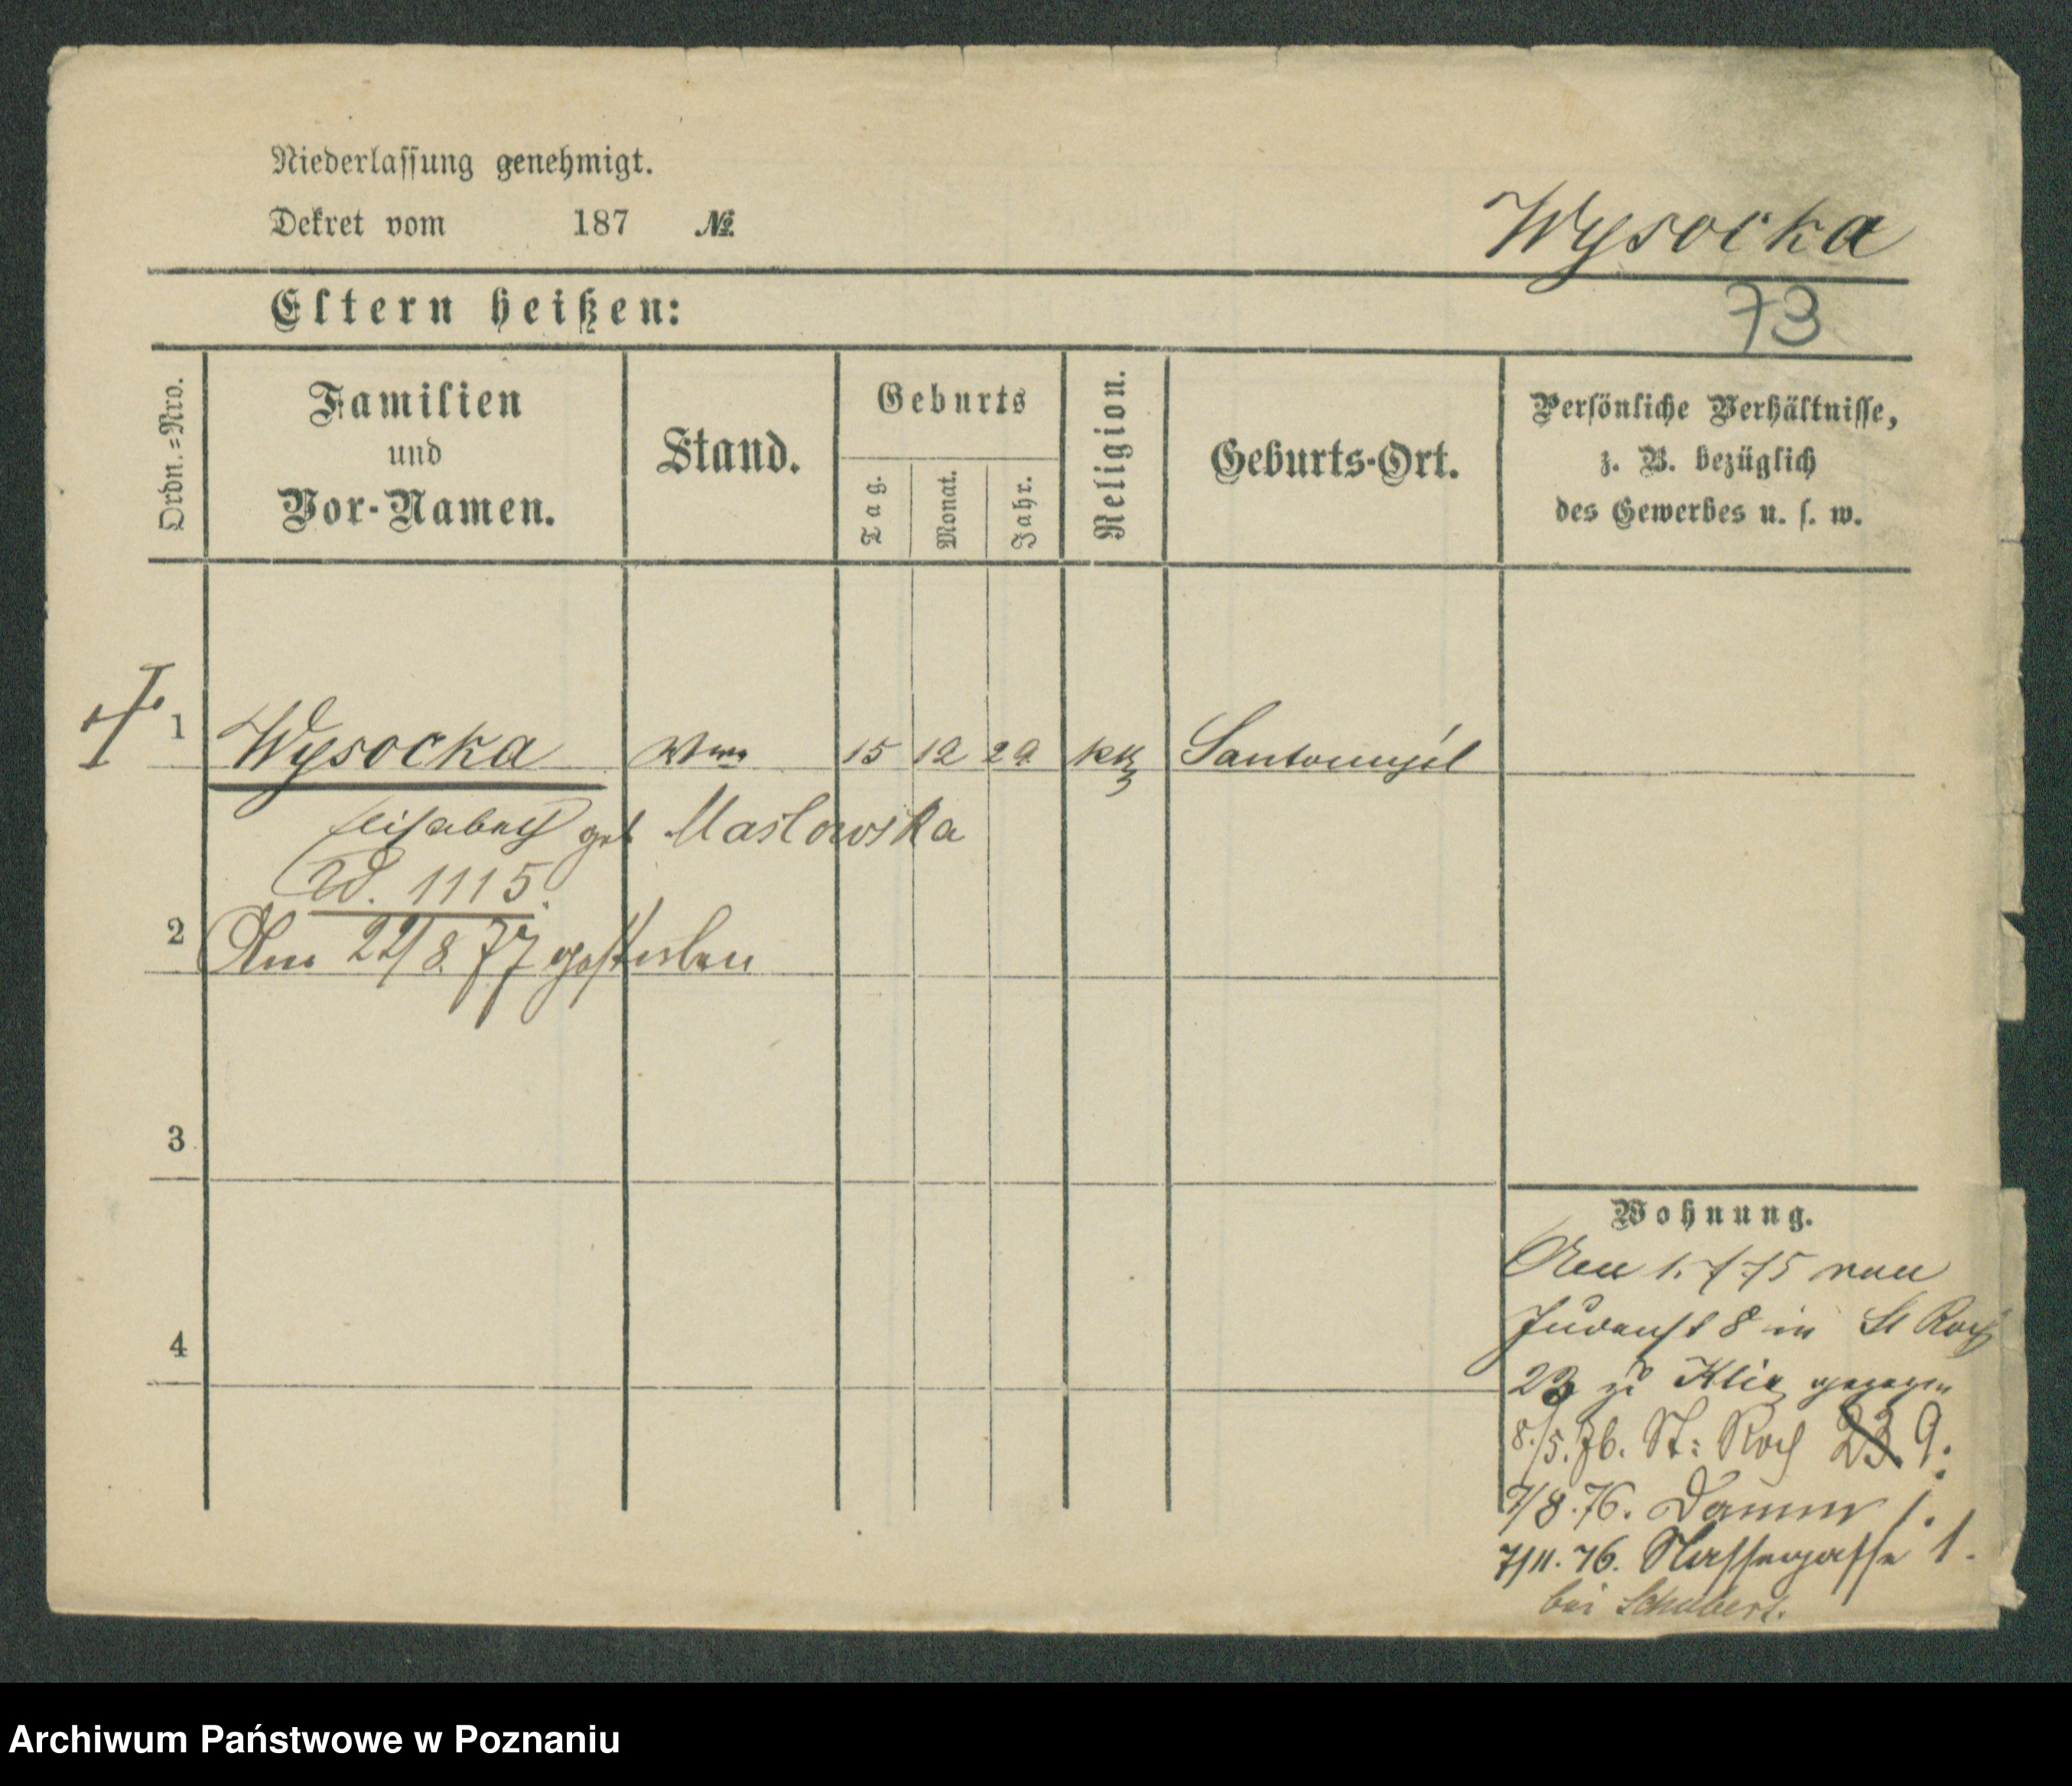 Niederlassung genehmigt.
Dekret vom 187 №
Wysocka
Eltern heißen:
73
Ordn.=Nro.
Familien
und
Vor-Namen.
Stand.
Geburts
Tag.
Monat.
Jahr.
Religion.
Geburts-Ort.
Persönliche Verhältnisse,
z. B. bezüglich
des Gewerbes u. s. w.
1 Wysocka Wwe 15 12 29 kth Santomysl
Elisabeth geb Maslowska
W. 1115.
2 Am 22/8. 77 gestorben
3
4
Wohnung.
Am 1.7.75 von
Judenst 8 in St Roch
23 zu gezogen
8./5. 76. St: Roch 23 9.
7/8. 76. Damm 1.
7/11. 76. Nassegasse 1.
bei Schubert.
Archiwum Państwowe w Poznaniu